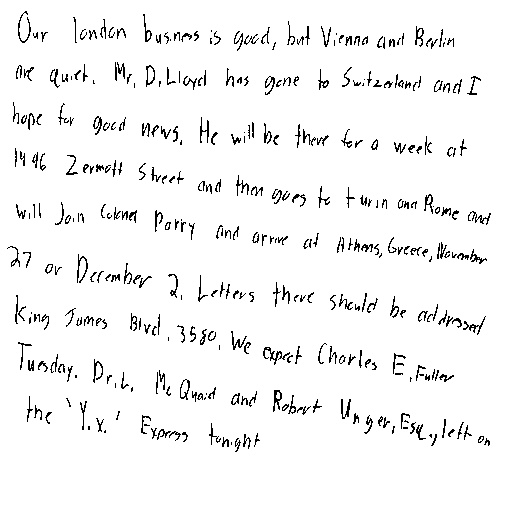 Our london business is good, but Vienna and Berlin
are quiet. Mr. D. Lloyd has gone to Switzerland and I
hope for good news. He will be there for a week at
1496 Zermott Street and then goes to turin and Rome and
will Join Colonel Parry and arrive at Athens, Greece, November
27 or December 2. Letters there should be addressed
King James Blvd. 3580. We expect Charles E. Fuller
Tuesday. Dr. L. Mc Quaid and Robert Unger, Esq., left on
the 'Y.X.' Express tonight